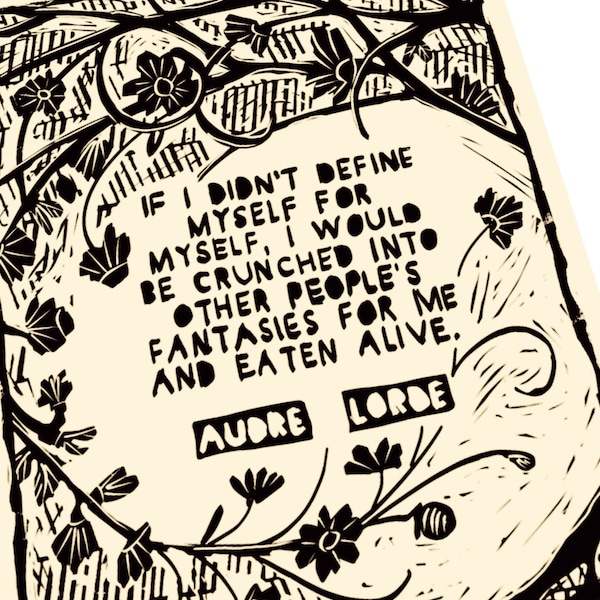 IF I DIDN'T DEFINE
MYSELF FOR
MYSELF, I WOULD
BE CRUNCHED INTO
OTHER PEOPLE'S
FANTASIES FOR ME
AND EATEN ALIVE.
AUDRE LORDE